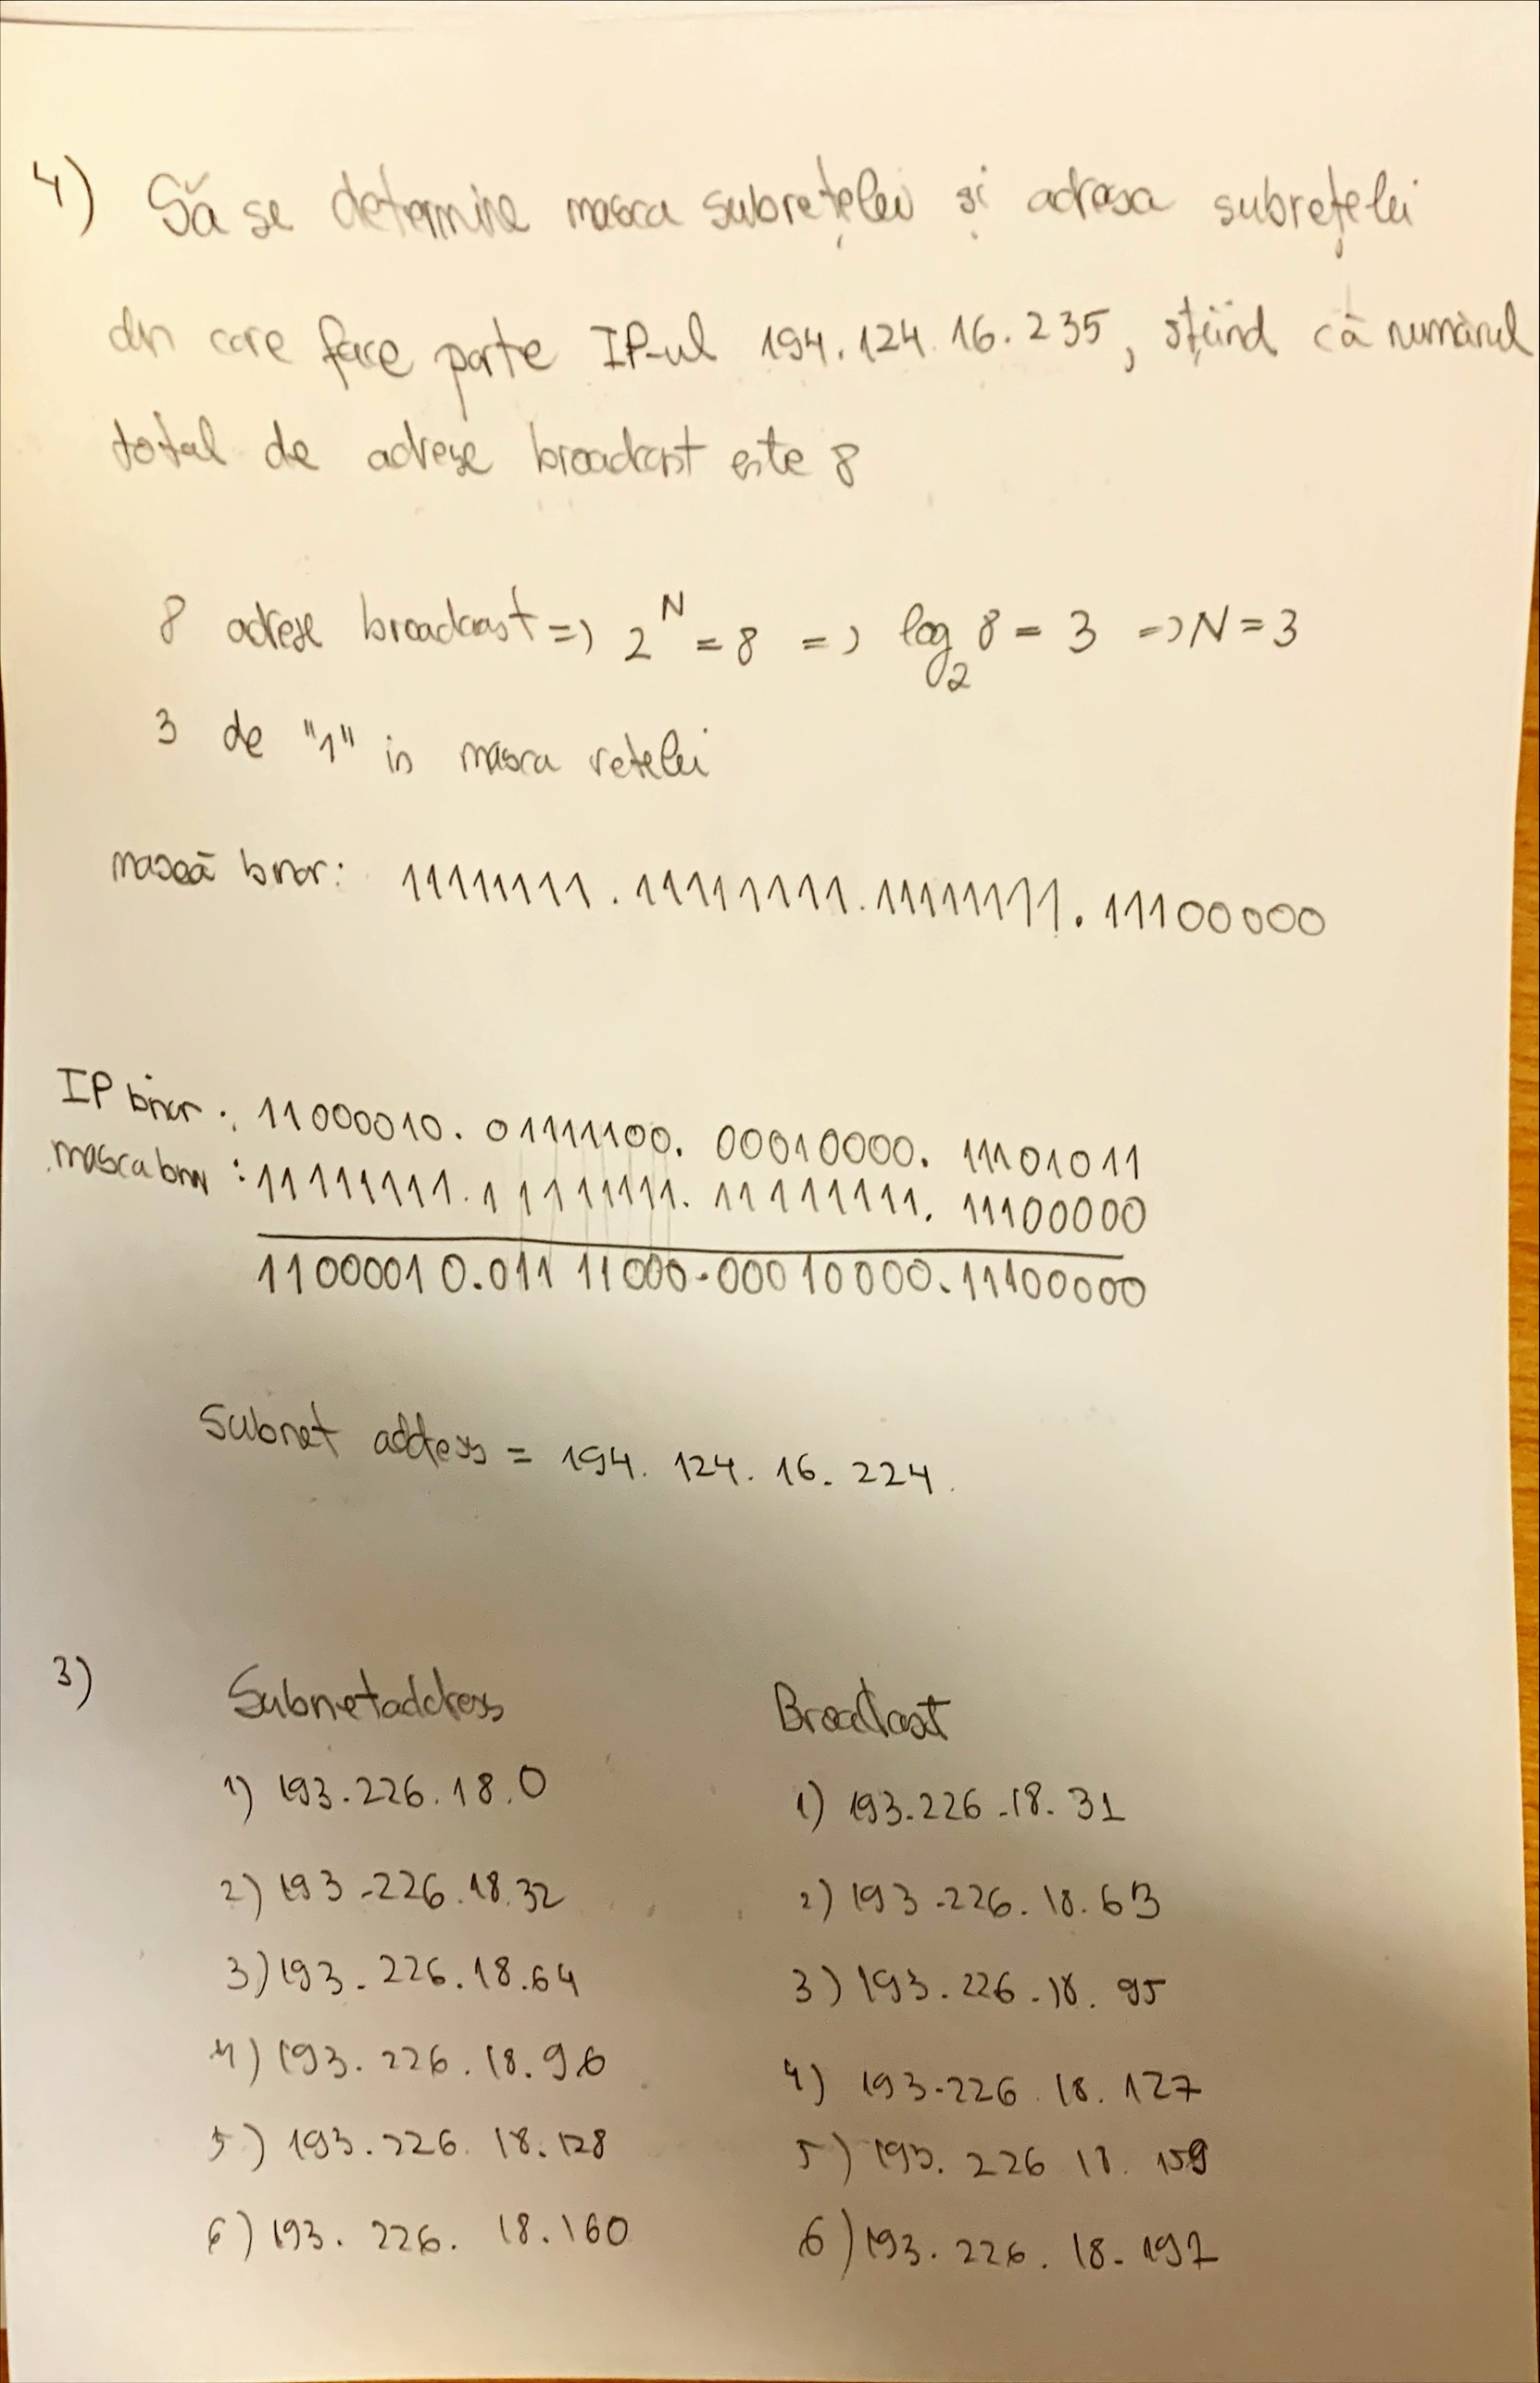 4) Să se determine masca subrețelei și adresa subrețelei
din care face parte IP-ul 194.124.16.235, știind că numărul
total de adrese broadcast este 8
8 adrese broadcast => 2^N = 8 => log_2 8 = 3 => N = 3
3 de "1" in masca retelei
mască binar: 11111111.11111111.11111111.11100000
IP binar: 11000010.01111100.00010000.11101011
masca binar: 11111111.11111111.11111111.11100000
11000010.01111000.00010000.11100000
Subnet address = 194.124.16.224.
3) Subnetaddress Broadcast
1) 193.226.18.0 1) 193.226.18.31
2) 193.226.18.32 2) 193.226.18.63
3) 193.226.18.64 3) 193.226.18.95
4) 193.226.18.96 4) 193.226.18.127
5) 193.226.18.128 5) 193.226.18.159
6) 193.226.18.160 6) 193.226.18.191